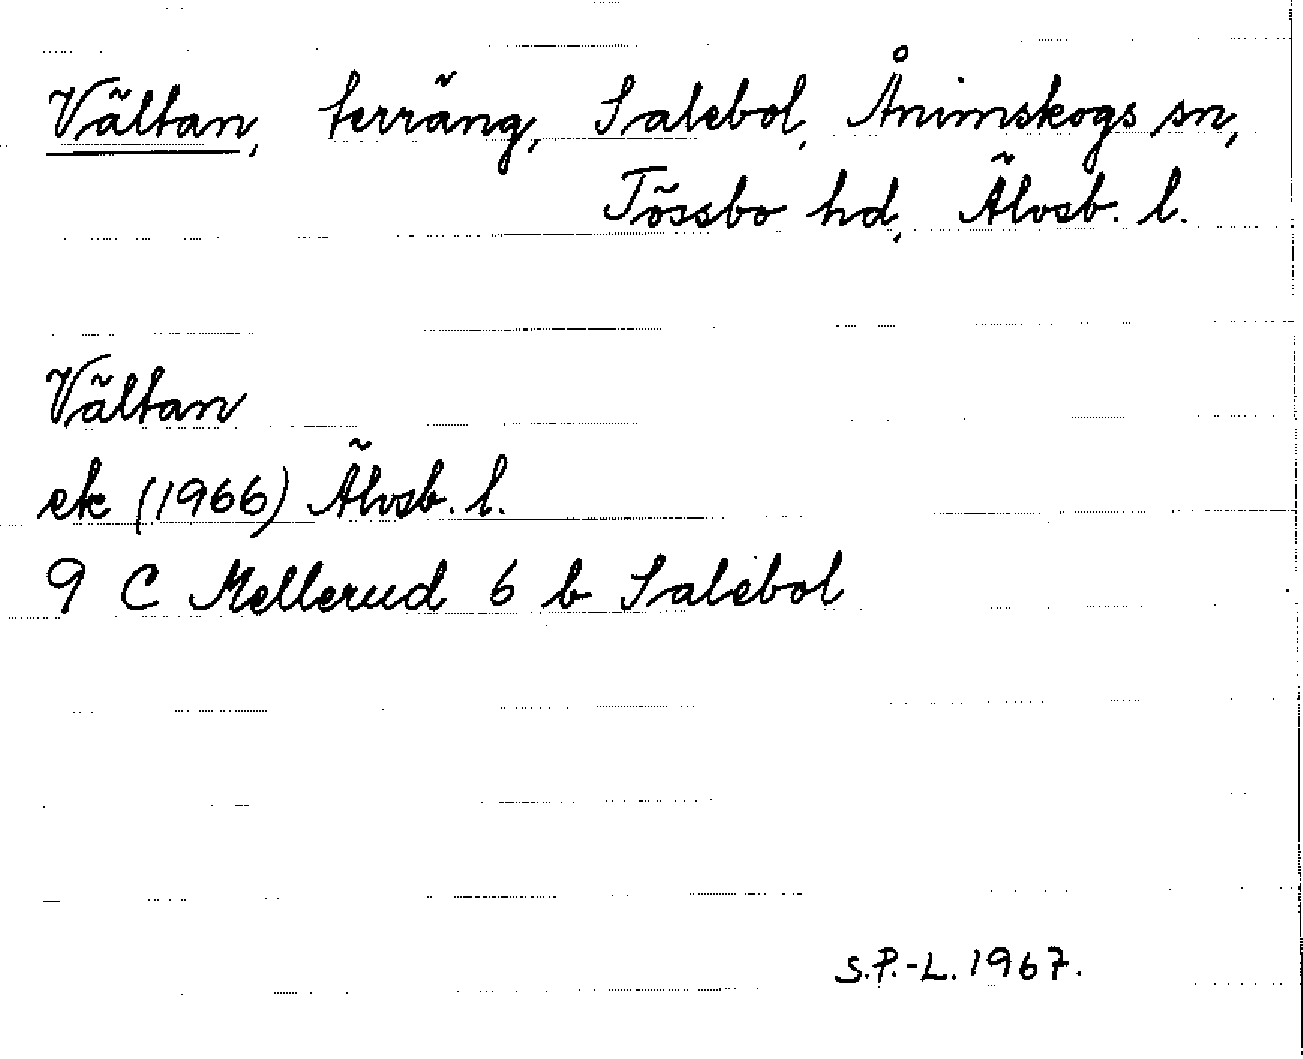 Vältan, terräng, Salebol, Ånimskogs sn,
Tössbo hd, Älvsb. l.
Vältan
ek (1966) Älvsb. l.
9 C Mellerud 6 b Salebol
S.P.-L. 1967.